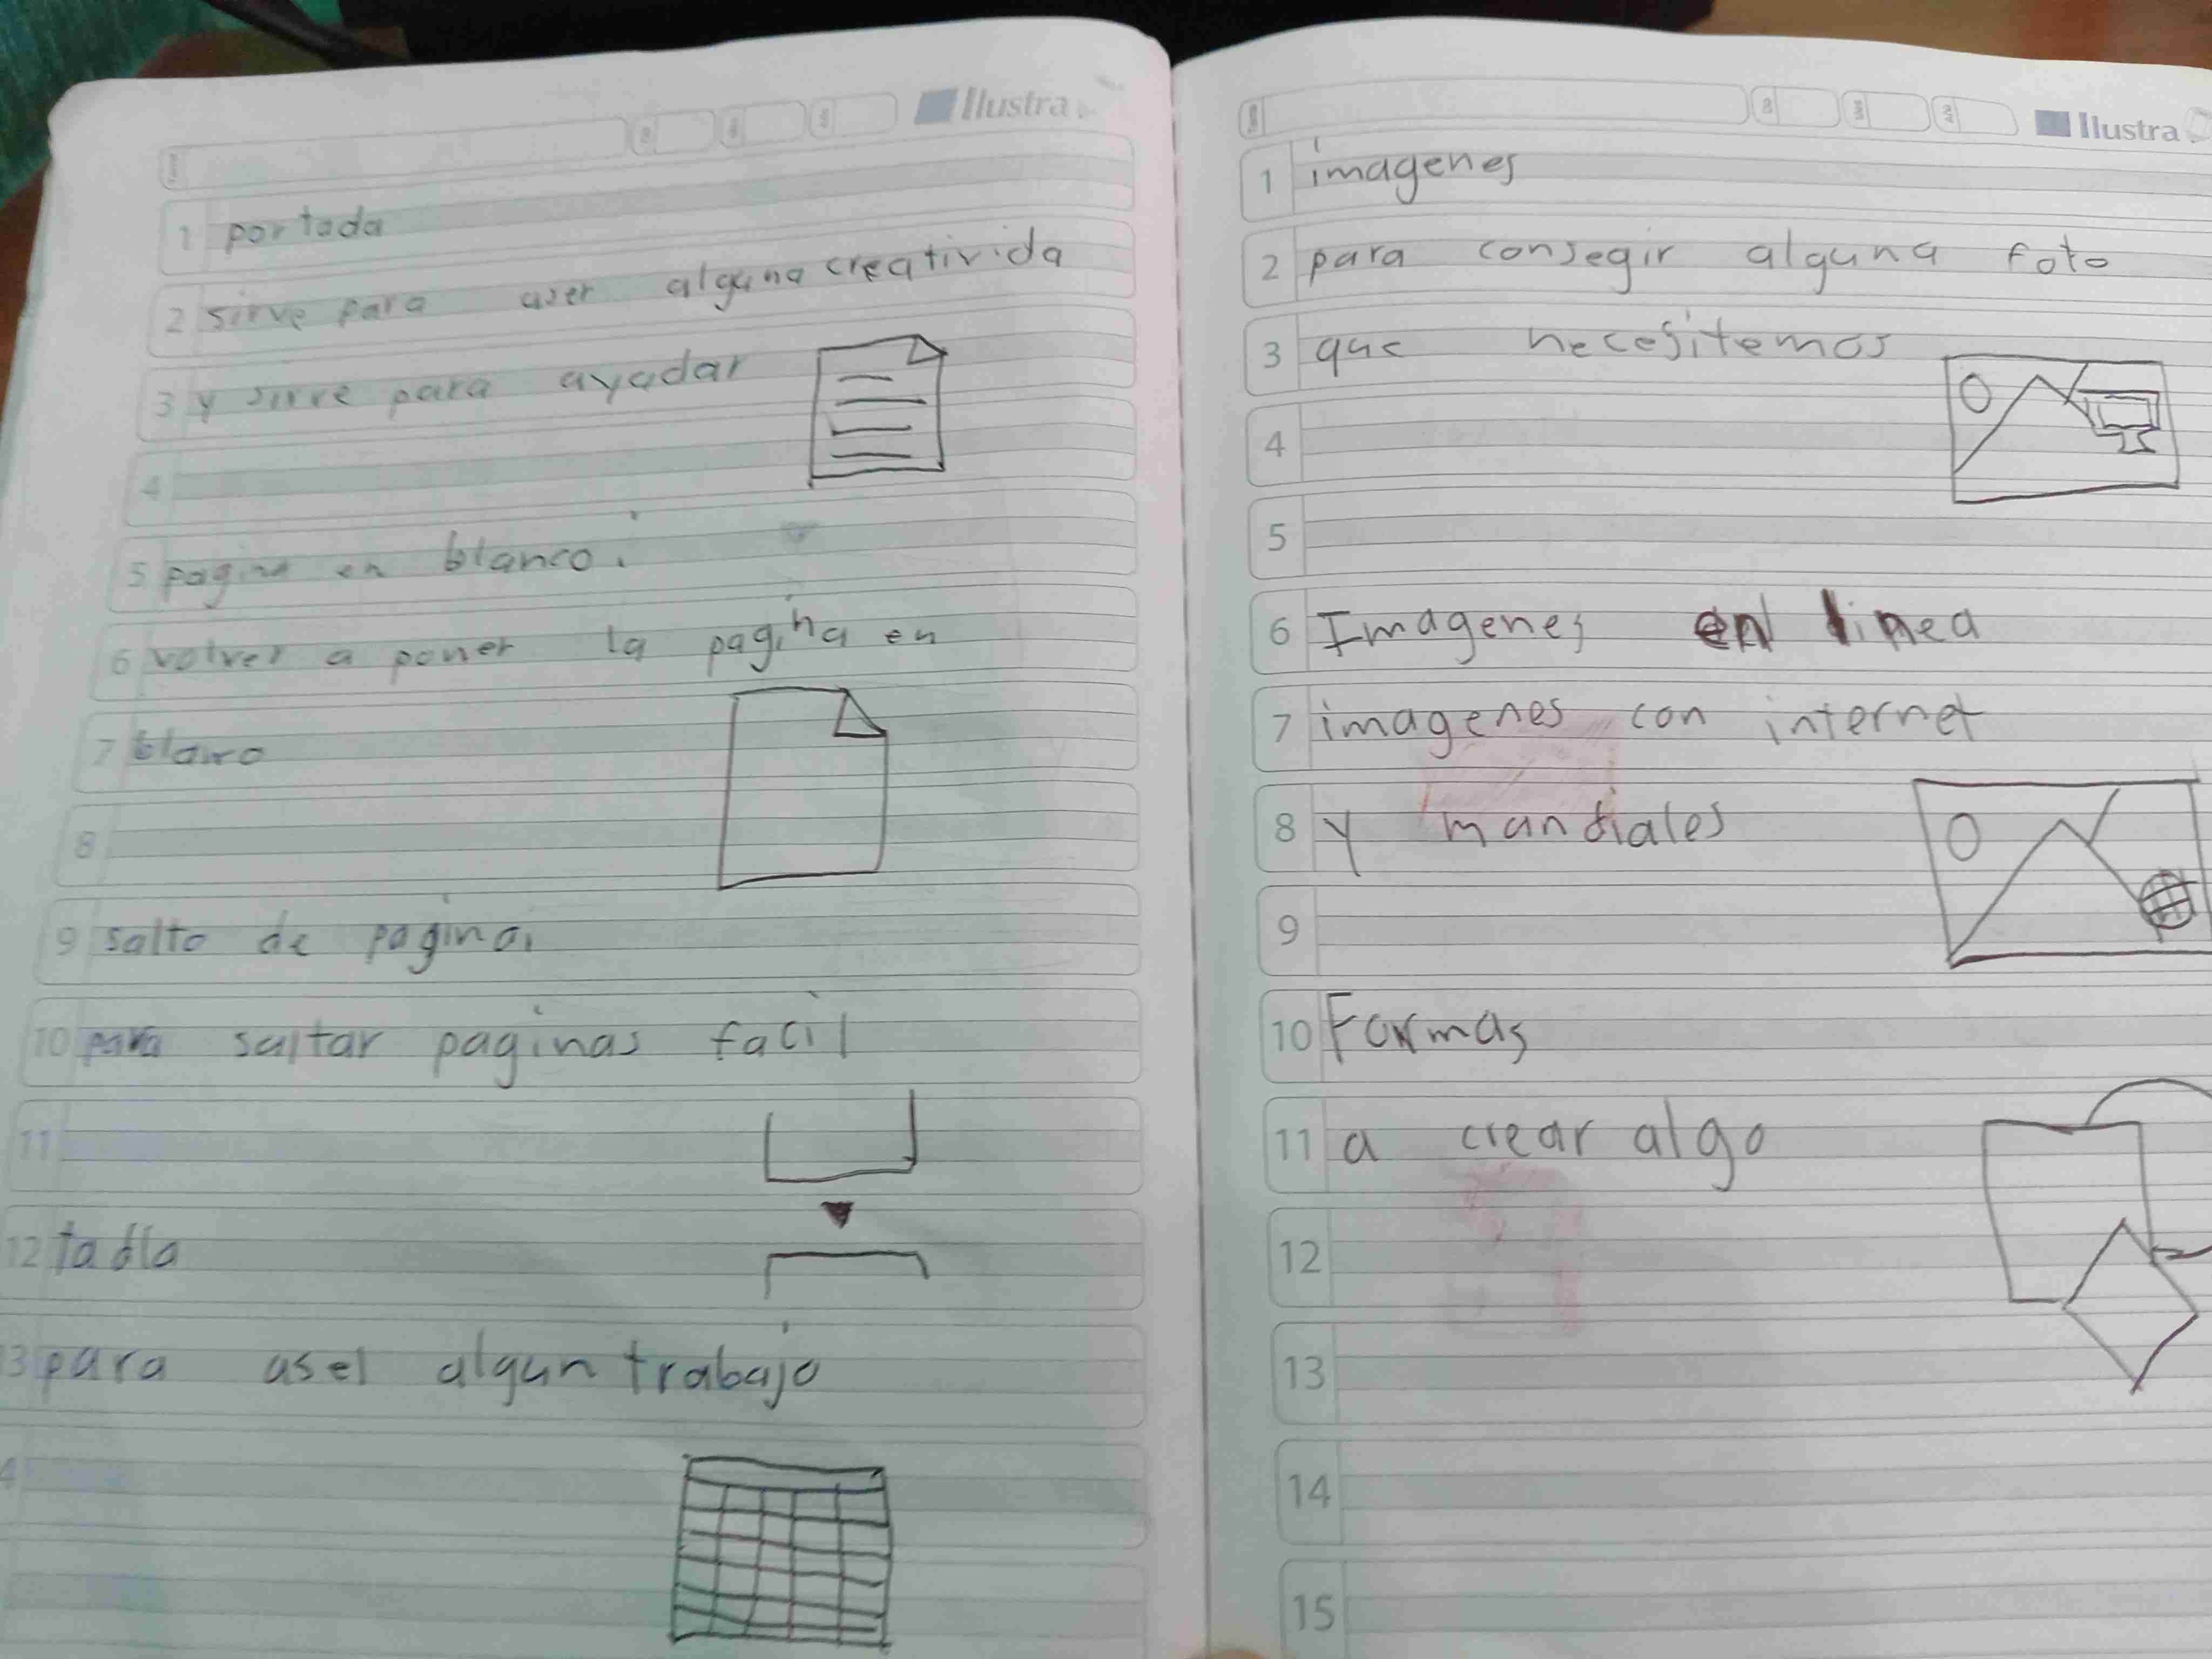 Ilustra
1 portada
2 sirve para aser alguna creativida
3 y sirve para ayudar
4
5 pagina en blanco.
6 volver a poner la pagina en
7 blanco
8
9 salto de pagina
10 para saltar paginas facil
11
12 tabla
13 para asel algun trabajo
4
Ilustra
1 imagenes
2 para consegir alguna foto
3 que necesitemos
4
5
6 Imagenes en linea
7 imagenes con internet
8 y mundiales
9
10 Formas
11 a crear algo
12
13
14
15